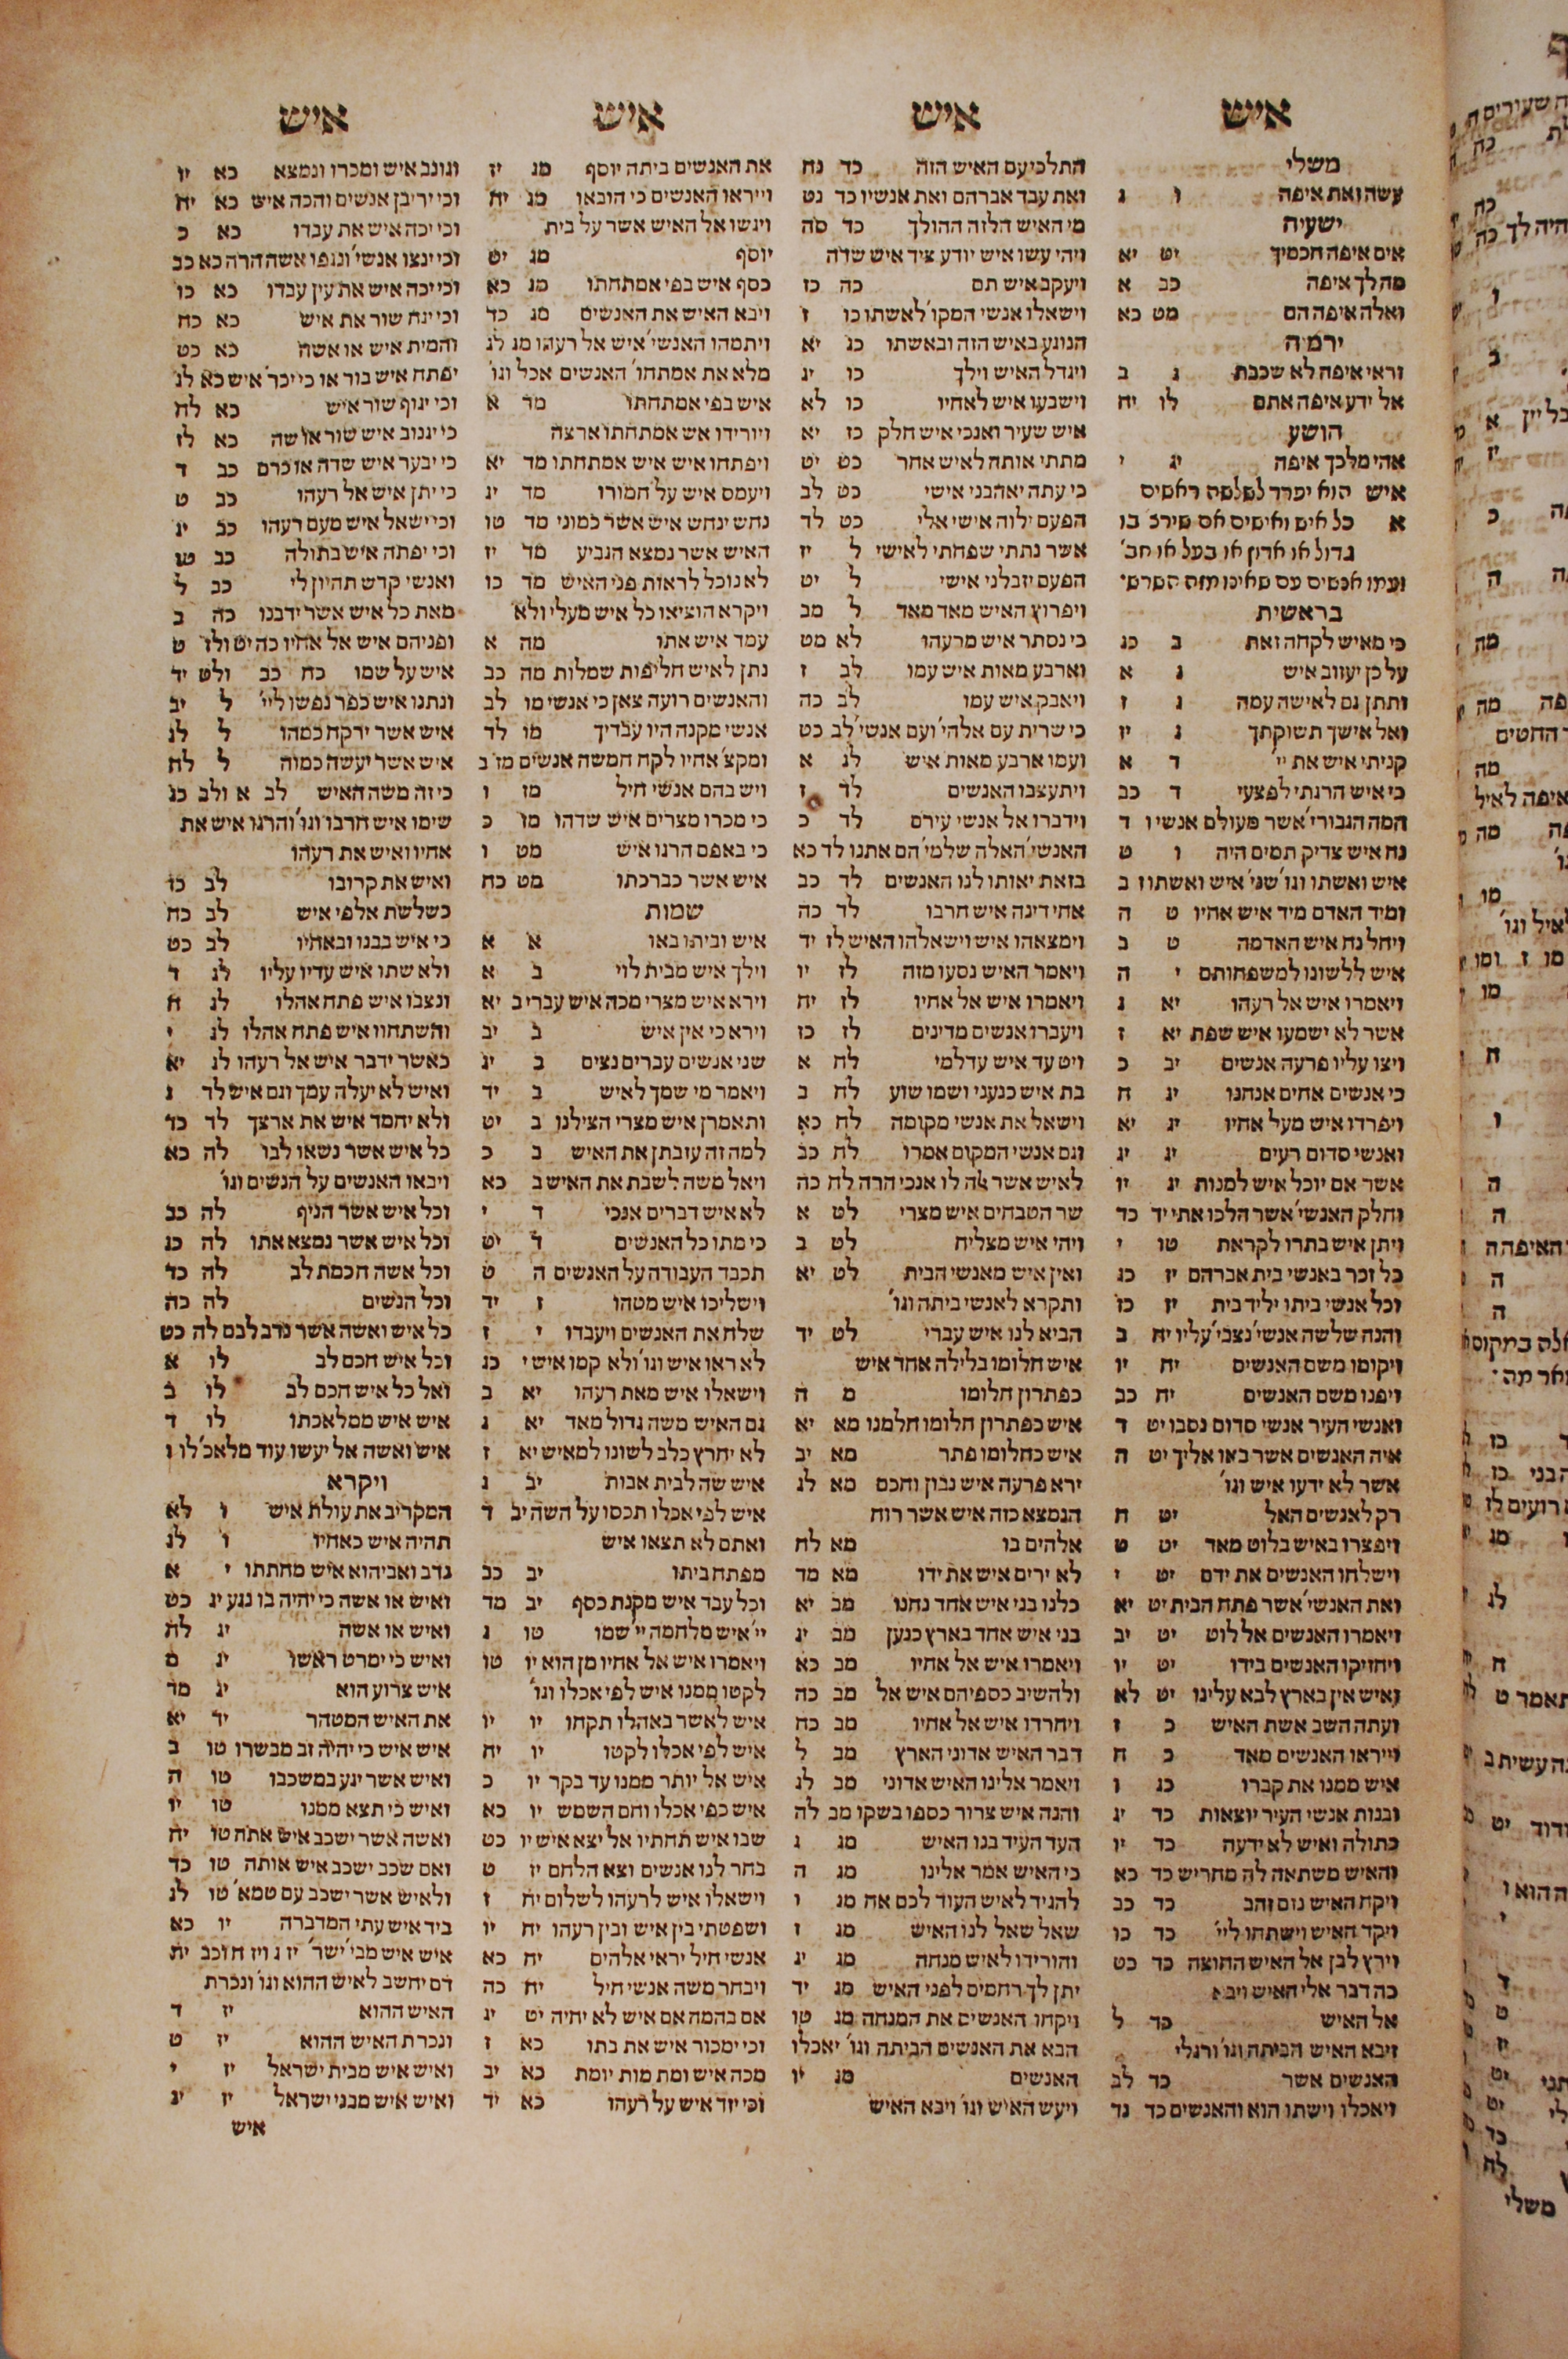 איש
משלי
עשה ואת איפה ו ג
ישעיה
אים איפה חכמיך יט יא
מה לך איפה כב א
ואלה איפה הם מט כא
ירמיה
וראי איפה לא שכבת ג ב
אל ידע איפה אתם לו יח
הושע
אהי מלכך איפה יג י
איש הוא יפרד לשלשה ראשים
א כל איש ואישים אם שירצ בו
גדול או אדון או בעל או חב׳
ועמו אנשים עם שאינו מזה השרש׳
בראשית
כי מאיש לקחה זאת ב כג
על כן יעזוב איש ג א
ותתן גם לאישה עמה ג ז
ואל אישך תשוקתך ג יז
קניתי איש את יי׳ ד א
כי איש הרגתי לפצעי ד כב
המה הגבורי׳ אשר מעולם אנשי ו ד
נח איש צדיק תמים היה ו ט
איש ואשתו וגו׳ שני׳ איש ואשתו ז ב
ומיד האדם מיד איש אחיו ט ה
ויחל נח איש האדמה ט ב
איש ללשונו למשפחותם י ה
ויאמרו איש אל רעהו יא ג
אשר לא ישמעו איש שפת יא ז
ויצו עליו פרעה אנשים יב כ
כי אנשים אחים אנחנו יג ח
ויפרדו איש מעל אחיו יג יא
ואנשי סדום רעים יג יג
אשר אם יוכל איש למנות יג יו
וחלק האנשי׳ אשר הלכו אתי יד כד
ויתן איש בתרו לקראת טו י
כל זכר באנשי בית אברהם יז כג
וכל אנשי ביתו יליד בית יז כז
והנה שלשה אנשי׳ נצבי׳ עליו יח ב
ויקומו משם האנשים יח יו
ויפנו משם האנשים יח כב
ואנשי העיר אנשי סדום נסבו יט ד
איה האנשים אשר באו אליך יט ה
אשר לא ידעו איש וגו׳
רק לאנשים האל יט ח
ויפצרו באיש בלוט מאד יט ט
וישלחו האנשים את ידם יט י
ואת האנשי׳ אשר פתח הבית יט יא
ויאמרו האנשים אל לוט יט יב
ויחזיקו האנשים בידו יט יו
ואיש אין בארץ לבא עלינו יט לא
ועתה השב אשת האיש כ ז
וייראו האנשים מאד כ ח
איש ממנו את קברו כג ו
ובנות אנשי העיר יוצאות כד יג
בתולה ואיש לא ידעה כד יו
והאיש משתאה לה מחריש כד כא
ויקח האיש נזם זהב כד כב
ויקד האיש וישתחו ליי׳ כד כו
וירץ לבן אל האיש החוצה כד כט
כה דבר אלי האיש ויבא
אל האיש כד ל
ויבא האיש הביתה וגו׳ ורגלי
האנשים אשר כד לב
ויאכלו וישתו הוא והאנשים כד נד
איש
התלכי עם האיש הזה כד נח
ואת עבד אברהם ואת אנשיו כד נט
מי האיש הלזה ההולך כד סה
ויהי עשו איש יודע ציד איש שדה
ויעקב איש תם כה כז
וישאלו אנשי המקו׳ לאשתו כו ז
הנוגע באיש הזה ובאשתו כו יא
ויגדל האיש וילך כו יג
וישבעו איש לאחיו כו לא
איש שעיר ואנכי איש חלק כז יא
מתתי אותה לאיש אחר כט יט
כי עתה יאהבני אישי כט לב
הפעם ילוה אישי אלי כט לד
אשר נתתי שפחתי לאישי ל יז
הפעם יזבלני אישי ל יט
ויפרוץ האיש מאד מאד ל מב
כי נסתר איש מרעהו לא מט
וארבע מאות איש עמו לב ז
ויאבק איש עמו לב כה
כי שרית עם אלהי׳ ועם אנשי׳ לב כט
ועמו ארבע מאות איש לג א
ויתעצבו האנשים לד ז
וידברו אל אנשי עירם לד כ
האנשי׳ האלה שלמי׳ הם אתנו לד כא
בזאת יאותו לנו האנשים לד כב
אחי דינה איש חרבו לד כה
וימצאהו איש וישאלהו האיש לז יד
ויאמר האיש נסעו מזה לז יו
ויאמרו איש אל אחיו לז יח
ויעברו אנשים מדינים לז כז
ויט עד איש עדלמי לח א
בת איש כנעני ושמו שוע לח ב
וישאל את אנשי מקומה לח כא
וגם אנשי המקום אמרו לח כב
לאיש אשר אלה לו אנכי הרה לח כה
שר הטבחים איש מצרי לט א
ויהי איש מצליח לט ב
ואין איש מאנשי הבית לט יא
ותקרא לאנשי ביתה וגו׳
הביא לנו איש עברי לט יד
איש חלומו בלילה אחד איש
כפתרון חלומו מ ה
איש כפתרון חלומו חלמנו מא יא
איש כחלומו פתר מא יב
ירא פרעה איש נבון וחכם מא לג
הנמצא כזה איש אשר רוח
אלהים בו מא לח
לא ירים איש את ידו מא מד
כלנו בני איש אחד נחנו מב יא
בני איש אחד בארץ כנען מב יג
ויאמרו איש אל אחיו מב כא
ולהשיב כספיהם איש אל מב כה
ויחרדו איש אל אחיו מב כח
דבר האיש אדוני הארץ מב ל
ויאמר אלינו האיש אדוני מב לג
והנה איש צרור כספו בשקו מב לה
העד העיד בנו האיש מג ג
כי האיש אמר אלינו מג ה
להגיד לאיש העוד לכם אח מג ו
שאל שאל לנו האיש מג ז
והורידו לאיש מנחה מג יג
יתן לך רחמים לפני האיש מג יד
ויקחו האנשים את המנחה מג טו
הבא את האנשים הביתה וגו׳ יאכלו
האנשים מג יו
ויעש האיש וגו׳ ויבא האיש
איש
את האנשים ביתה יוסף מג יז
וייראו האנשים כי הובאו מג יח
ויגשו אל האיש אשר על בית
יוסף מג יט
כסף איש בפי אמתחתו מג כא
ויבא האיש את האנשים מג כד
ויתמהו האנשי׳ איש אל רעהו מג לג
מלא את אמתחו׳ האנשים אכל וגו׳
איש בפי אמתחתו מד א
ויורידו אש אמתחתו ארצה
ויפתחו איש איש אמתחתו מד יא
ויעמס איש על חמורו מד יג
נחש ינחש איש אשר כמוני מד טו
האיש אשר נמצא הגביע מד יז
לא נוכל לראות פני האיש מד כו
ויקרא הוציאו כל איש מעלי ולא
עמד איש אתו מה א
נתן לאיש חליפות שמלות מה כב
והאנשים רועה צאן כי אנשי מו לב
אנשי מקנה היו עבדיך מו לד
ומקצ׳ אחיו לקח חמשה אנשים מז ב
ויש בהם אנשי חיל מז ו
כי מכרו מצרים איש שדהו מז כ
כי באפם הרגו איש מט ו
איש אשר כברכתו מט כח
שמות
איש וביתו באו א א
וילך איש מבית לוי ב א
וירא איש מצרי מכה איש עברי ב יא
וירא כי אין איש ב יב
שני אנשים עברים נצים ב יג
ויאמר מי שמך לאיש ב יד
ותאמרן איש מצרי הצילנו ב יט
למה זה עזבתן את האיש ב כ
ויאל משה לשבת את האיש ב כא
לא איש דברים אנכי ד י
כי מתו כל האנשים ד יט
תכבד העבודה על האנשים ה ט
וישליכו איש מטהו ז יד
שלח את האנשים ויעבדו י ז
לא ראו איש וגו׳ ולא קמו איש י כג
וישאלו איש מאת רעהו יא ב
גם האיש משה גדול מאד יא ג
לא יחרץ כלב לשונו למאיש יא ז
איש שה לבית אבות יב ג
איש לפי אכלו תכסו על השה יב ד
ואתם לא תצאו איש
מפתח ביתו יב כב
וכל עבד איש מקנת כסף יב מד
יי׳ איש מלחמה יי׳ שמו טו ג
ויאמרו איש אל אחיו מן הוא יו טו
לקטו ממנו איש לפי אכלו וגו׳
איש לאשר באהלו תקחו יו יו
איש לפי אכלו לקטו יו יח
איש אל יותר ממנו עד בקר יו כ
איש כפי אכלו וחם השמש יו כא
שבו איש תחתיו אל יצא איש יו כט
בחר לנו אנשים וצא הלחם יז ט
וישאלו איש לרעהו לשלום יח ז
ושפטתי בין איש ובין רעהו יח יו
אנשי חיל יראי אלהים יח כא
ויבחר משה אנשי חיל יח כה
אם בהמה אם איש לא יחיה יט יג
וכי ימכור איש את בתו כא ז
מכה איש ומת מות יומת כא יב
וכי יזד איש על רעהו כא יד
איש
וגונב איש ומכרו ונמצא כא יו
וכי יריבן אנשים והכה איש כא יח
וכי יכה איש את עבדו כא כ
וכי ינצו אנשי׳ ונגפו אשה הרה כא כב
וכי יכה איש את עין עבדו כא כו
וכי יגח שור את איש כא כח
והמית איש או אשה כא כט
יפתח איש בור או כי יכר׳ איש כא לג
וכי יגוף שור איש כא לח
כי יגנוב איש שור או שה כא לז
כי יבער איש שדה או כרם כב ד
כי יתן איש אל רעהו כב ט
וכי ישאל איש מעם רעהו כב יג
וכי יפתה איש בתולה כב טו
ואנשי קדש תהיון לי כב ל
מאת כל איש אשר ידבנו כה ב
ופניהם איש אל אחיו כה יט ולז ט
איש על שמו כח כב ולט יד
ונתנו איש כפר נפשו ליי׳ ל יב
איש אשר ירקח כמהו ל לג
איש אשר יעשה כמוה ל לח
כי זה משה האיש לב א ולב כג
שימו איש חרבו וגו׳ והרגו איש את
אחיו ואיש את רעהו
ואיש את קרובו לב כז
כשלשת אלפי איש לב כח
כי איש בבנו ובאחיו לב כט
ולא שתו איש עדיו עליו לג ד
ונצבו איש פתח אהלו לג ח
והשתחוו איש פתח אהלו לג י
כאשר ידבר איש אל רעהו לג יא
ואיש לא יעלה עמך וגם איש לד ג
ולא יחמד איש את ארצך לד כד
כל איש אשר נשאו לבו לה כא
ויבאו האנשים על הנשים וגו׳
וכל איש אשר הניף לה כב
וכל איש אשר נמצא אתו לה כג
וכל אשה חכמת לב לה כד
וכל הנשים לה כה
כל איש ואשה אשר נדב לבם לה כט
וכל איש חכם לב לו א
ואל כל איש חכם לב לו ב
איש איש ממלאכתו לו ד
איש ואשה אל יעשו עוד מלאכ׳ לו ו
ויקרא
המקריב את עולת איש ו לא
תהיה איש כאחיו ו לג
נדב ואביהוא איש מחתתו י א
ואיש או אשה כי יהיה בו נגע יג כט
ואיש או אשה יג לח
ואיש כי ימרט ראשו יג מ
איש צרוע הוא יג מד
את האיש המטהר יד יא
איש איש כי יהיה זב מבשרו טו ב
ואיש אשר יגע במשכבו טו ה
ואיש כי תצא ממנו טו יו
ואשה אשר ישכב איש אתה טו יח
ואם שכב ישכב איש אותה טו כד
ולאיש אשר ישכב עם טמא׳ טו לג
ביד איש עתי המדברה יו כא
איש איש מבי׳ ישר׳ יז ג ויז ח וכב יח
דם יחשב לאיש ההוא וגו׳ ונכרת
האיש ההוא יז ד
ונכרת האיש ההוא יז ט
ואיש איש מבית ישראל יז י
ואיש איש מבני ישראל יז יג
איש